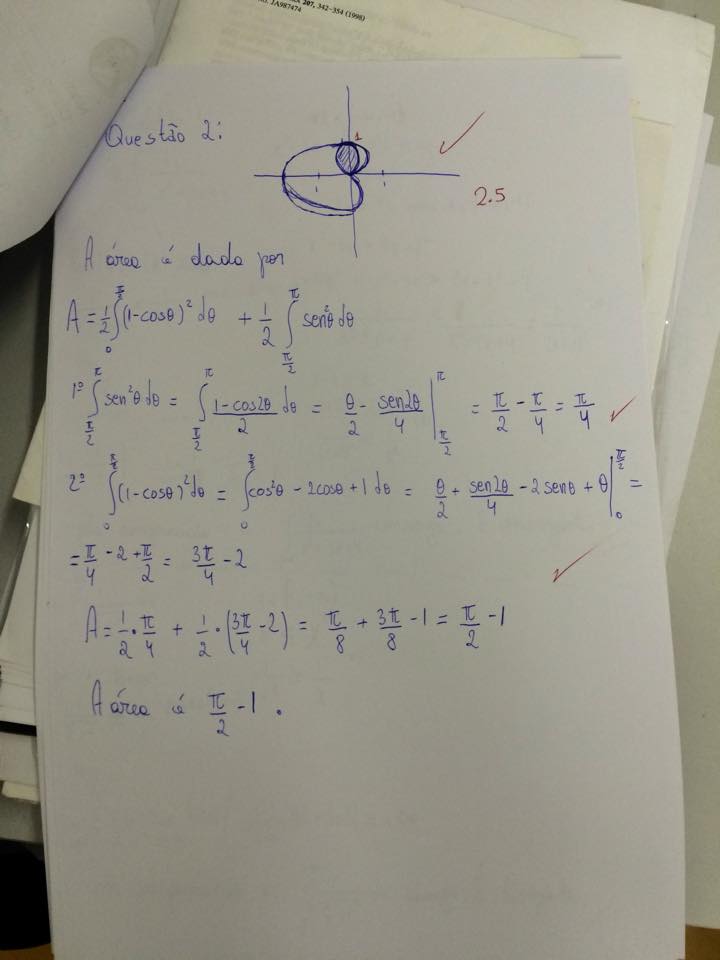 207, 342-354 (1998)
JA987474
Questão 2:
1
2.5
A área é dada por
A = 1/2 ∫_0^{π/2} (1-cosθ)² dθ + 1/2 ∫_{π/2}^{π} sen²θ dθ
1º ∫_{π/2}^{π} sen²θ dθ = ∫_{π/2}^{π} (1-cos2θ)/2 dθ = θ/2 - sen2θ/4 |_{π/2}^{π} = π/2 - π/4 = π/4
2º ∫_0^{π/2} (1-cosθ)² dθ = ∫_0^{π/2} cos²θ - 2cosθ + 1 dθ = θ/2 + sen2θ/4 - 2senθ + θ |_0^{π/2} =
= π/4 - 2 + π/2 = 3π/4 - 2
A = 1/2 · π/4 + 1/2 · (3π/4 - 2) = π/8 + 3π/8 - 1 = π/2 - 1
A área é π/2 - 1 .